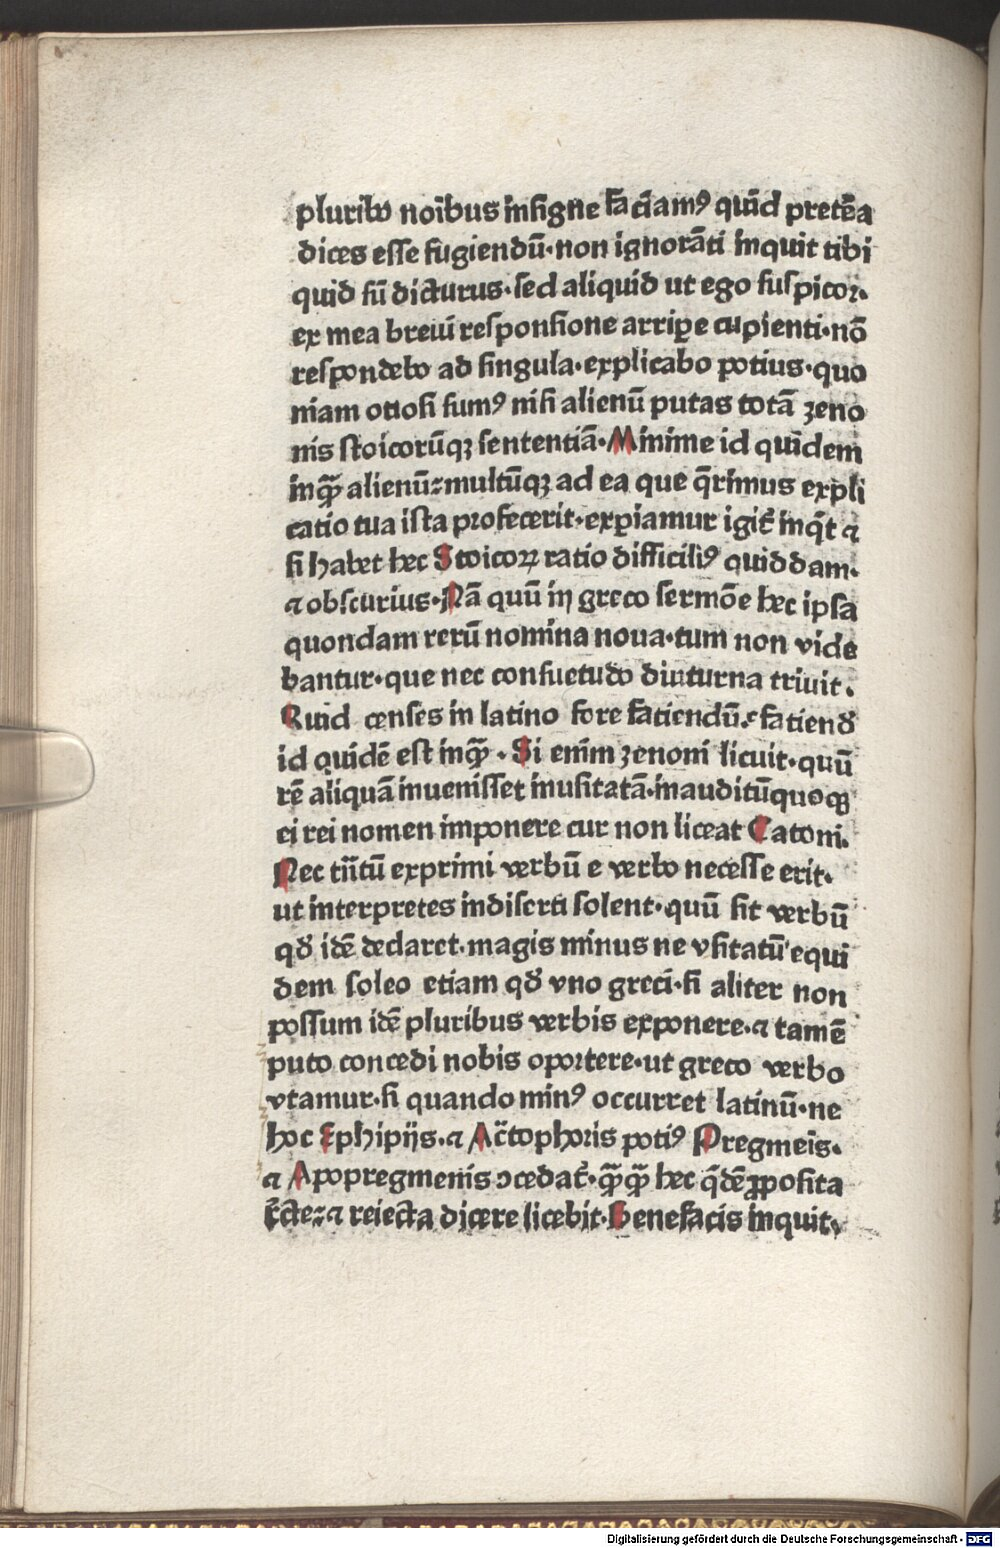 pluribꝰ noībus insigne faciamꝰ quid̄ pretēa
dices esse fugiendū·non ignorāti inquit tibi
quid sū dicturus·sed aliquid ut ego suspicor·
ex mea breuī responsione arripe cupienti·nō
respondebo ad singula·explicabo potius·quo
niam otiosi sumꝰ nisi alienū putas totā zeno
nis stoicorūqꝫ sententiā·Minime id quidem
inqᷓ alienū:multūqꝫ ad ea que q̄rimus expli
catio tua ista profecerit·experiamur igit᷑ inq̄t ⁊
si habet hec Stoicoꝝ ratio difficiliꝰ quiddam·
⁊ obscurius·Nā quū in greco sermōe hec ipsa
quondam rerū nomina noua·tum non vide
bantur·que nec consuetudo diuturna triuit·
Quid censes in latino fore fatiendū·fatiendꝰ
id quidē est inqᷓ·Si enim zenoni licuit·quū
rē aliquā inuenisset inusitatā·inauditūquoqꝫ
ei rei nomen imponere cur non liceat Catoni·
Nec tn̄tū exprimi verbū e verbo necesse erit·
ut interpretes indiserti solent·quū sit verbū
qđ idē declaret·magis minus ne vsitatū equi
dem soleo etiam qđ vno greci·si aliter non
possum idē pluribus verbis exponere·⁊ tamē
puto concedi nobis oportere·ut greco verbo
vtamur·si quando minꝰ occurret latinū·ne
hoc Ephipijs·⁊ Ac̄tophoris potiꝰ Pregmeīs·
⁊ Apopregmenis ↄcedat᷑·qᷓqᷓ hec q̄dē ꝓposita
r̄cte:⁊ reiecta dicere licebit·Benefacis inquit·
Digitalisierung gefördert durch die Deutsche Forschungsgemeinschaft - DFG